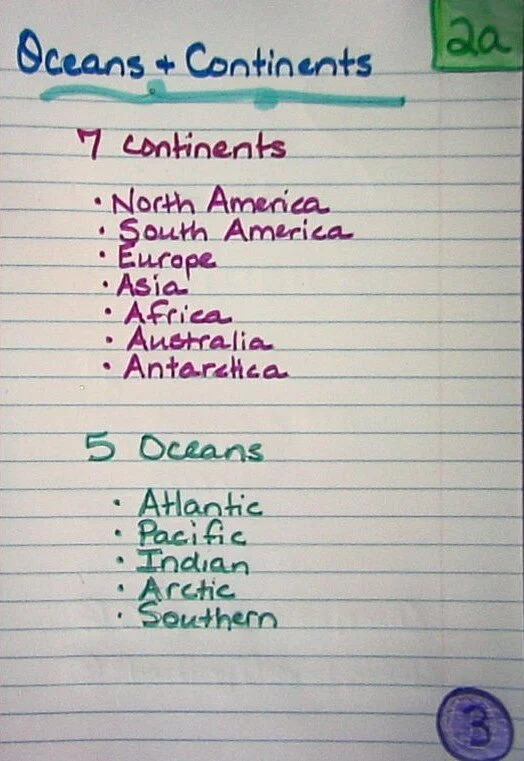 2a
Oceans + Continents
7 continents
• North America
• South America
• Europe
• Asia
• Africa
• Australia
• Antarctica
5 Oceans
• Atlantic
• Pacific
• Indian
• Arctic
• Southern
3